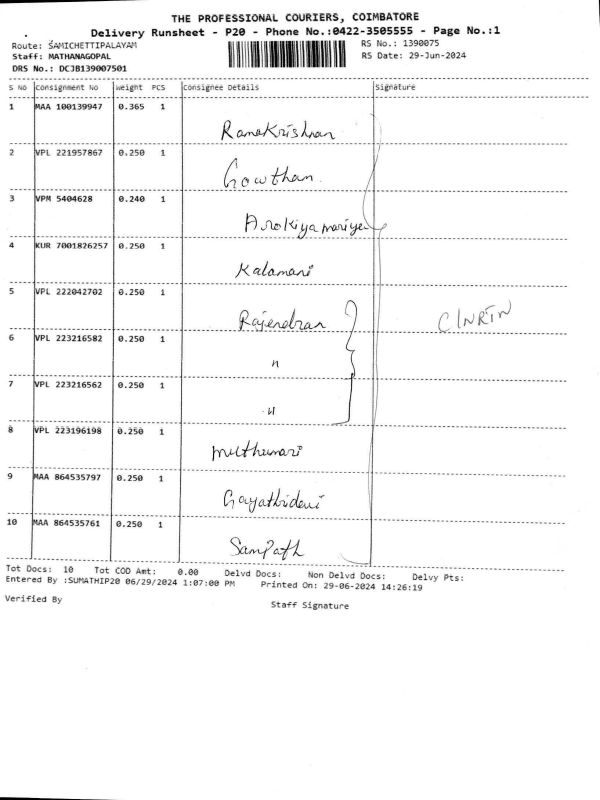 THE PROFESSIONAL COURIERS, COIMBATORE
Delivery Runsheet - P20 - Phone No.:0422-3505555 - Page No.:1
Route: SAMICHETTIPALAYAM
RS No.: 1390075
Staff: MATHANAGOPAL
RS Date: 29-Jun-2024
DRS No.: DCJB139007501
S No Consignment No Weight PCS Consignee Details Signature
1 MAA 100139947 0.365 1
Ramakrishnan
2 VPL 221957867 0.250 1
Gowtham.
3 VPM 5404628 0.240 1
Arokiya mariya
4 KUR 7001826257 0.250 1
Kalamani
5 VPL 222042702 0.250 1
Rajendran
6 VPL 223216582 0.250 1
"
7 VPL 223216562 0.250 1
"
8 VPL 223196198 0.250 1
muthumari
9 MAA 864535797 0.250 1
Gayathidevi
10 MAA 864535761 0.250 1
Sampath
Tot Docs: 10 Tot COD Amt: 0.00 Delvd Docs: Non Delvd Docs: Delvy Pts:
Entered By :SUMATHIP20 06/29/2024 1:07:00 PM Printed On: 29-06-2024 14:26:19
Verified By
Staff Signature